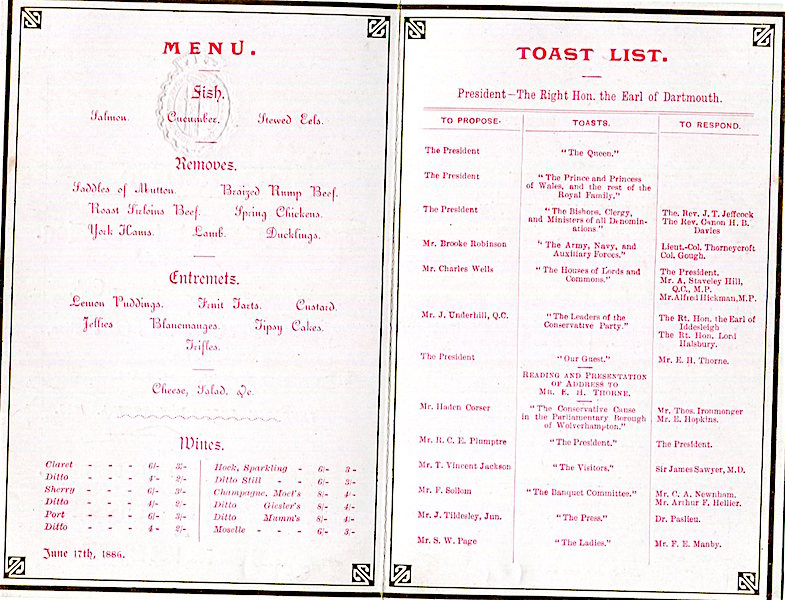 MENU.
Fish.
Salmon. Cucumber. Stewed Eels.
Removes.
Saddles of Mutton. Braized Rump Beef.
Roast Sirloins Beef. Spring Chickens.
York Hams. Lamb. Ducklings.
Entremets.
Lemon Puddings. Fruit Tarts. Custard.
Jellies Blancmanges. Tipsy Cakes.
Trifles.
Cheese, Salad, &c.
Wines.
Claret - - - 6/- 3/-
Ditto - - - 4/- 2/-
Sherry - - - 6/- 3/-
Ditto - - - 4/- 2/-
Port - - - 6/- 3/-
Ditto - - - 4- 2/-
Hock, Sparkling - 6/- 3-
Ditto Still - - 6/- 3/-
Champagne, Moet's 8/- 4/-
Ditto Giesler's 8/- 4/-
Ditto Mumm's 8/- 4/-
Moselle - - - 6/- 3/-
June 17th, 1886.
TOAST LIST.
President—The Right Hon. the Earl of Dartmouth.
TO PROPOSE. TOASTS. TO RESPOND.
The President "The Queen."
The President "The Prince and Princess
of Wales, and the rest of the
Royal Family."
The President "The Bishops, Clergy, The. Rev. J. T. Jeffcock
and Ministers of all Denomin- The Rev. Canon H. B.
ations." Davies
Mr. Brooke Robinson "The Army, Navy, and Lieut.-Col. Thorneycroft
Auxiliary Forces." Col. Gough.
Mr. Charles Wells "The Houses of Lords and The President.
Commons." Mr. A, Staveley Hill,
Q.C., M.P.
Mr. Alfred Hickman, M.P.
Mr. J. Underhill, Q.C. "The Leaders of the The Rt. Hon. the Earl of
Conservative Party." Iddesleigh
The Rt. Hon. Lord
Halsbury.
The President "Our Guest." Mr. E. H. Thorne.
READING AND PRESENTATION
OF ADDRESS TO
MR. E. H. THORNE.
Mr. Haden Corser "The Conservative Cause Mr. Thos. Ironmonger
in the Parliamentary Borough Mr. E. Hopkins.
of Wolverhampton."
Mr. R. C. E. Plumptre "The President." The President.
Mr. T. Vincent Jackson "The Visitors." Sir James Sawyer, M.D.
Mr. F. Sollom "The Banquet Committee." Mr. C. A. Newnham.
Mr. Arthur F. Hellier.
Mr. J. Tildesley, Jun. "The Press." Dr. Paslieu.
Mr. S. W. Page "The Ladies." Mr. F. E. Manby.